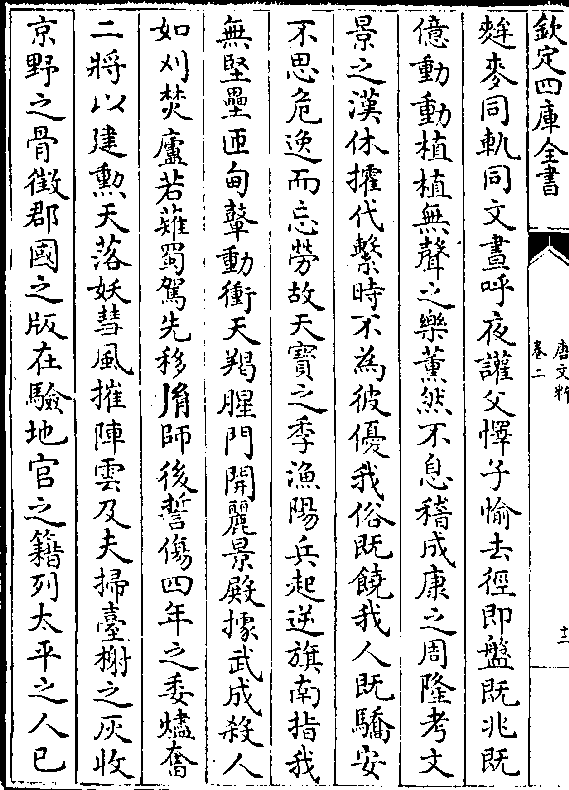 欽定四庫全書
唐文粹
卷二
十二
麰麥同軌同文晝呼夜讙父懌子愉去徑即盤既兆既
億動動植植無聲之樂薰然不息稽成康之周隆考文
景之漢休擢代繫時不為彼優我俗既饒我人既驕安
不思危逸而忘勞故天寶之季漁陽兵起逆旗南指我
無堅壘匝甸鼙動衝天羯腥門開麗景殿據武成殺人
如刈焚廬若薙蜀駕先移胤師後誓傷四年之委燼奮
二將以建勲天落妖彗風摧陣雲及夫掃臺榭之灰收
京野之骨徵郡國之版在驗地官之籍列太平之人已